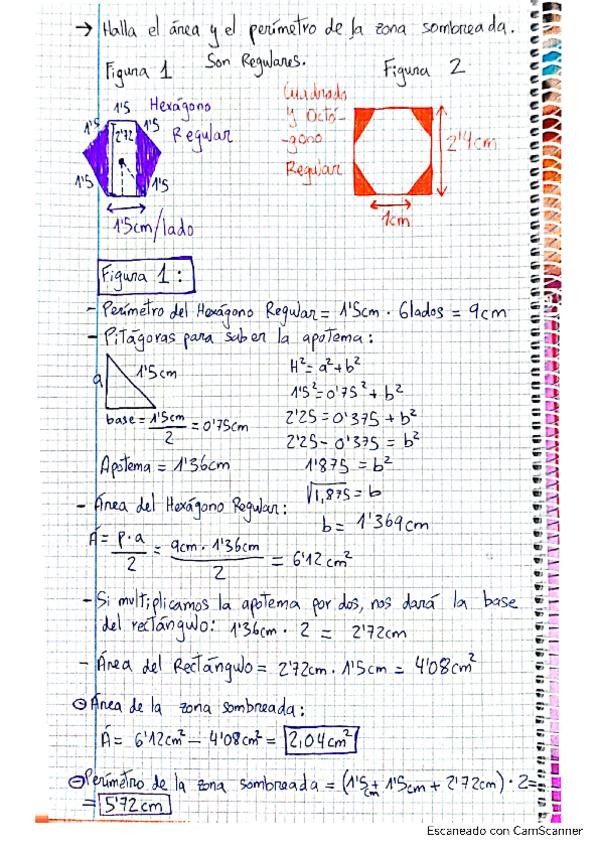 → Halla el área y el perímetro de la zona sombreada.
Son Regulares.
Figura 1
Figura 2
1'5 Hexágono
Regular
1'5
1'5
2'72
1'5
1'5
1'5cm/lado
Cuadrado
y Octó-
-gono
Regular
2'4cm
1cm
Figura 1:
- Perímetro del Hexágono Regular = 1'5cm · 6lados = 9cm
- Pitágoras para saber la apotema:
a
1'5cm
base = 1'5cm/2 = 0'75cm
Apotema = 1'36cm
H² = a² + b²
1'5² = 0'75² + b²
2'25 = 0'375 + b²
2'25 - 0'375 = b²
1'875 = b²
√1,875 = b
b = 1'369cm
- Área del Hexágono Regular:
Á = P·a/2 = 9cm · 1'36cm/2 = 6'12cm²
- Si multiplicamos la apotema por dos, nos dará la base
del rectángulo: 1'36cm · 2 = 2'72cm
- Área del Rectángulo = 2'72cm · 1'5cm = 4'08cm²
Área de la zona sombreada:
Á = 6'12cm² - 4'08cm² = 2,04cm²
Perímetro de la zona sombreada = (1'5cm + 1'5cm + 2'72cm) · 2 =
= 5'72cm
Escaneado con CamScanner